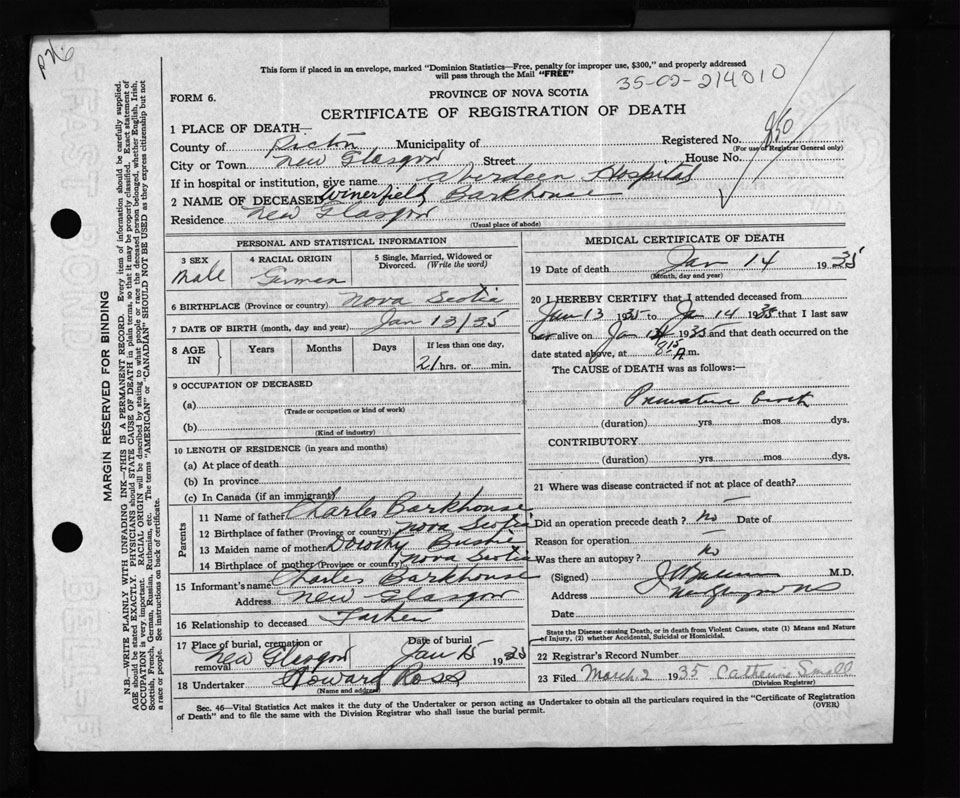 P26
This form if placed in an envelope, marked "Dominion Statistics—Free, penalty for improper use, $300," and properly addressed
will pass through the Mail "FREE"
35-02-214010
FORM 6.
PROVINCE OF NOVA SCOTIA
CERTIFICATE OF REGISTRATION OF DEATH
1 PLACE OF DEATH—
Registered No. 850
(For use of Registrar General only)
County of Pictou Municipality of
City or Town New Glasgow Street House No.
If in hospital or institution, give name Aberdeen Hospital
2 NAME OF DECEASED Barkhouse
Residence New Glasgow
(Usual place of abode)
PERSONAL AND STATISTICAL INFORMATION
3 SEX Male
4 RACIAL ORIGIN German
5 Single, Married, Widowed or
Divorced. (Write the word)
6 BIRTHPLACE (Province or country) Nova Scotia
7 DATE OF BIRTH (month, day and year) Jan 13/35
8 AGE IN Years Months Days If less than one day,
21 hrs. or min.
9 OCCUPATION OF DECEASED
(a)
(Trade or occupation or kind of work)
(b)
(Kind of industry)
10 LENGTH OF RESIDENCE (in years and months)
(a) At place of death
(b) In province
(c) In Canada (if an immigrant)
Parents
11 Name of father Charles Barkhouse
12 Birthplace of father (Province or country) Nova Scotia
13 Maiden name of mother Dorothy
14 Birthplace of mother (Province or country) Nova Scotia
15 Informant's name Charles Barkhouse
Address New Glasgow
16 Relationship to deceased Father
17 Place of burial, cremation or removal New Glasgow
Date of burial Jan 15 1935
18 Undertaker Howard Ross
(Name and address)
MEDICAL CERTIFICATE OF DEATH
19 Date of death Jan 14 1935
(Month, day and year)
20 I HEREBY CERTIFY that I attended deceased from
Jan 13 1935 to Jan 14 1935 that I last saw
alive on Jan 1935 and that death occurred on
date stated above, at 8:15 A.m.
The CAUSE of DEATH was as follows:—
Premature birth
(duration) yrs. mos. dys.
CONTRIBUTORY
(duration) yrs. mos. dys.
21 Where was disease contracted if not at place of death?
Did an operation precede death? No Date of
Reason for operation
Was there an autopsy? No
(Signed) M.D.
Address New Glasgow NS
Date
State the Disease causing Death, or in death from Violent Causes, state (1) Means and Nature
of Injury, (2) whether Accidental, Suicidal or Homicidal.
22 Registrar's Record Number
23 Filed March 2 1935 Catherine Small
(Division Registrar)
Sec. 46—Vital Statistics Act makes it the duty of the Undertaker or person acting as Undertaker to obtain all the particulars required in the "Certificate of Registration
of Death" and to file the same with the Division Registrar who shall issue the burial permit.
(OVER)
MARGIN RESERVED FOR BINDING
N.B.—WRITE PLAINLY WITH UNFADING INK—THIS IS A PERMANENT RECORD. Every item of information should be carefully supplied.
AGE should be stated EXACTLY. PHYSICIANS should STATE CAUSE OF DEATH in plain terms, so that it may be properly classified. Exact statement of
OCCUPATION is very important. RACIAL ORIGIN will be described by stating to what people or race the deceased person belonged, whether English, Irish,
Scottish, French, German, Russian, Ruthenian, etc. The terms "AMERICAN" or "CANADIAN" SHOULD NOT BE USED as they express citizenship but not
a race or people. See instructions on back of certificate.